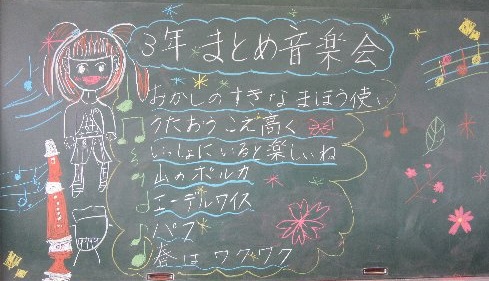 3年 まとめ音楽会
おかしのすきな まほう使い
うたおう こえ高く
いっしょにいると楽しいね
山のポルカ
エーデルワイス
パフ
春は ワクワク